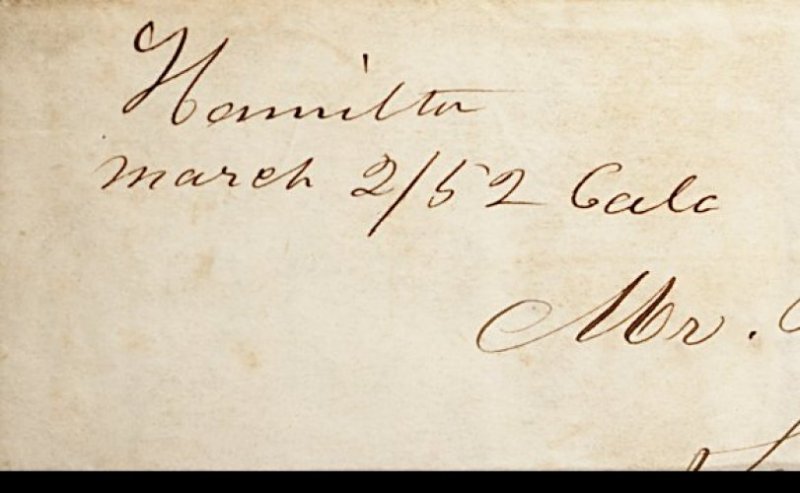 Hamilton
march 2/52 Cala
Mr.